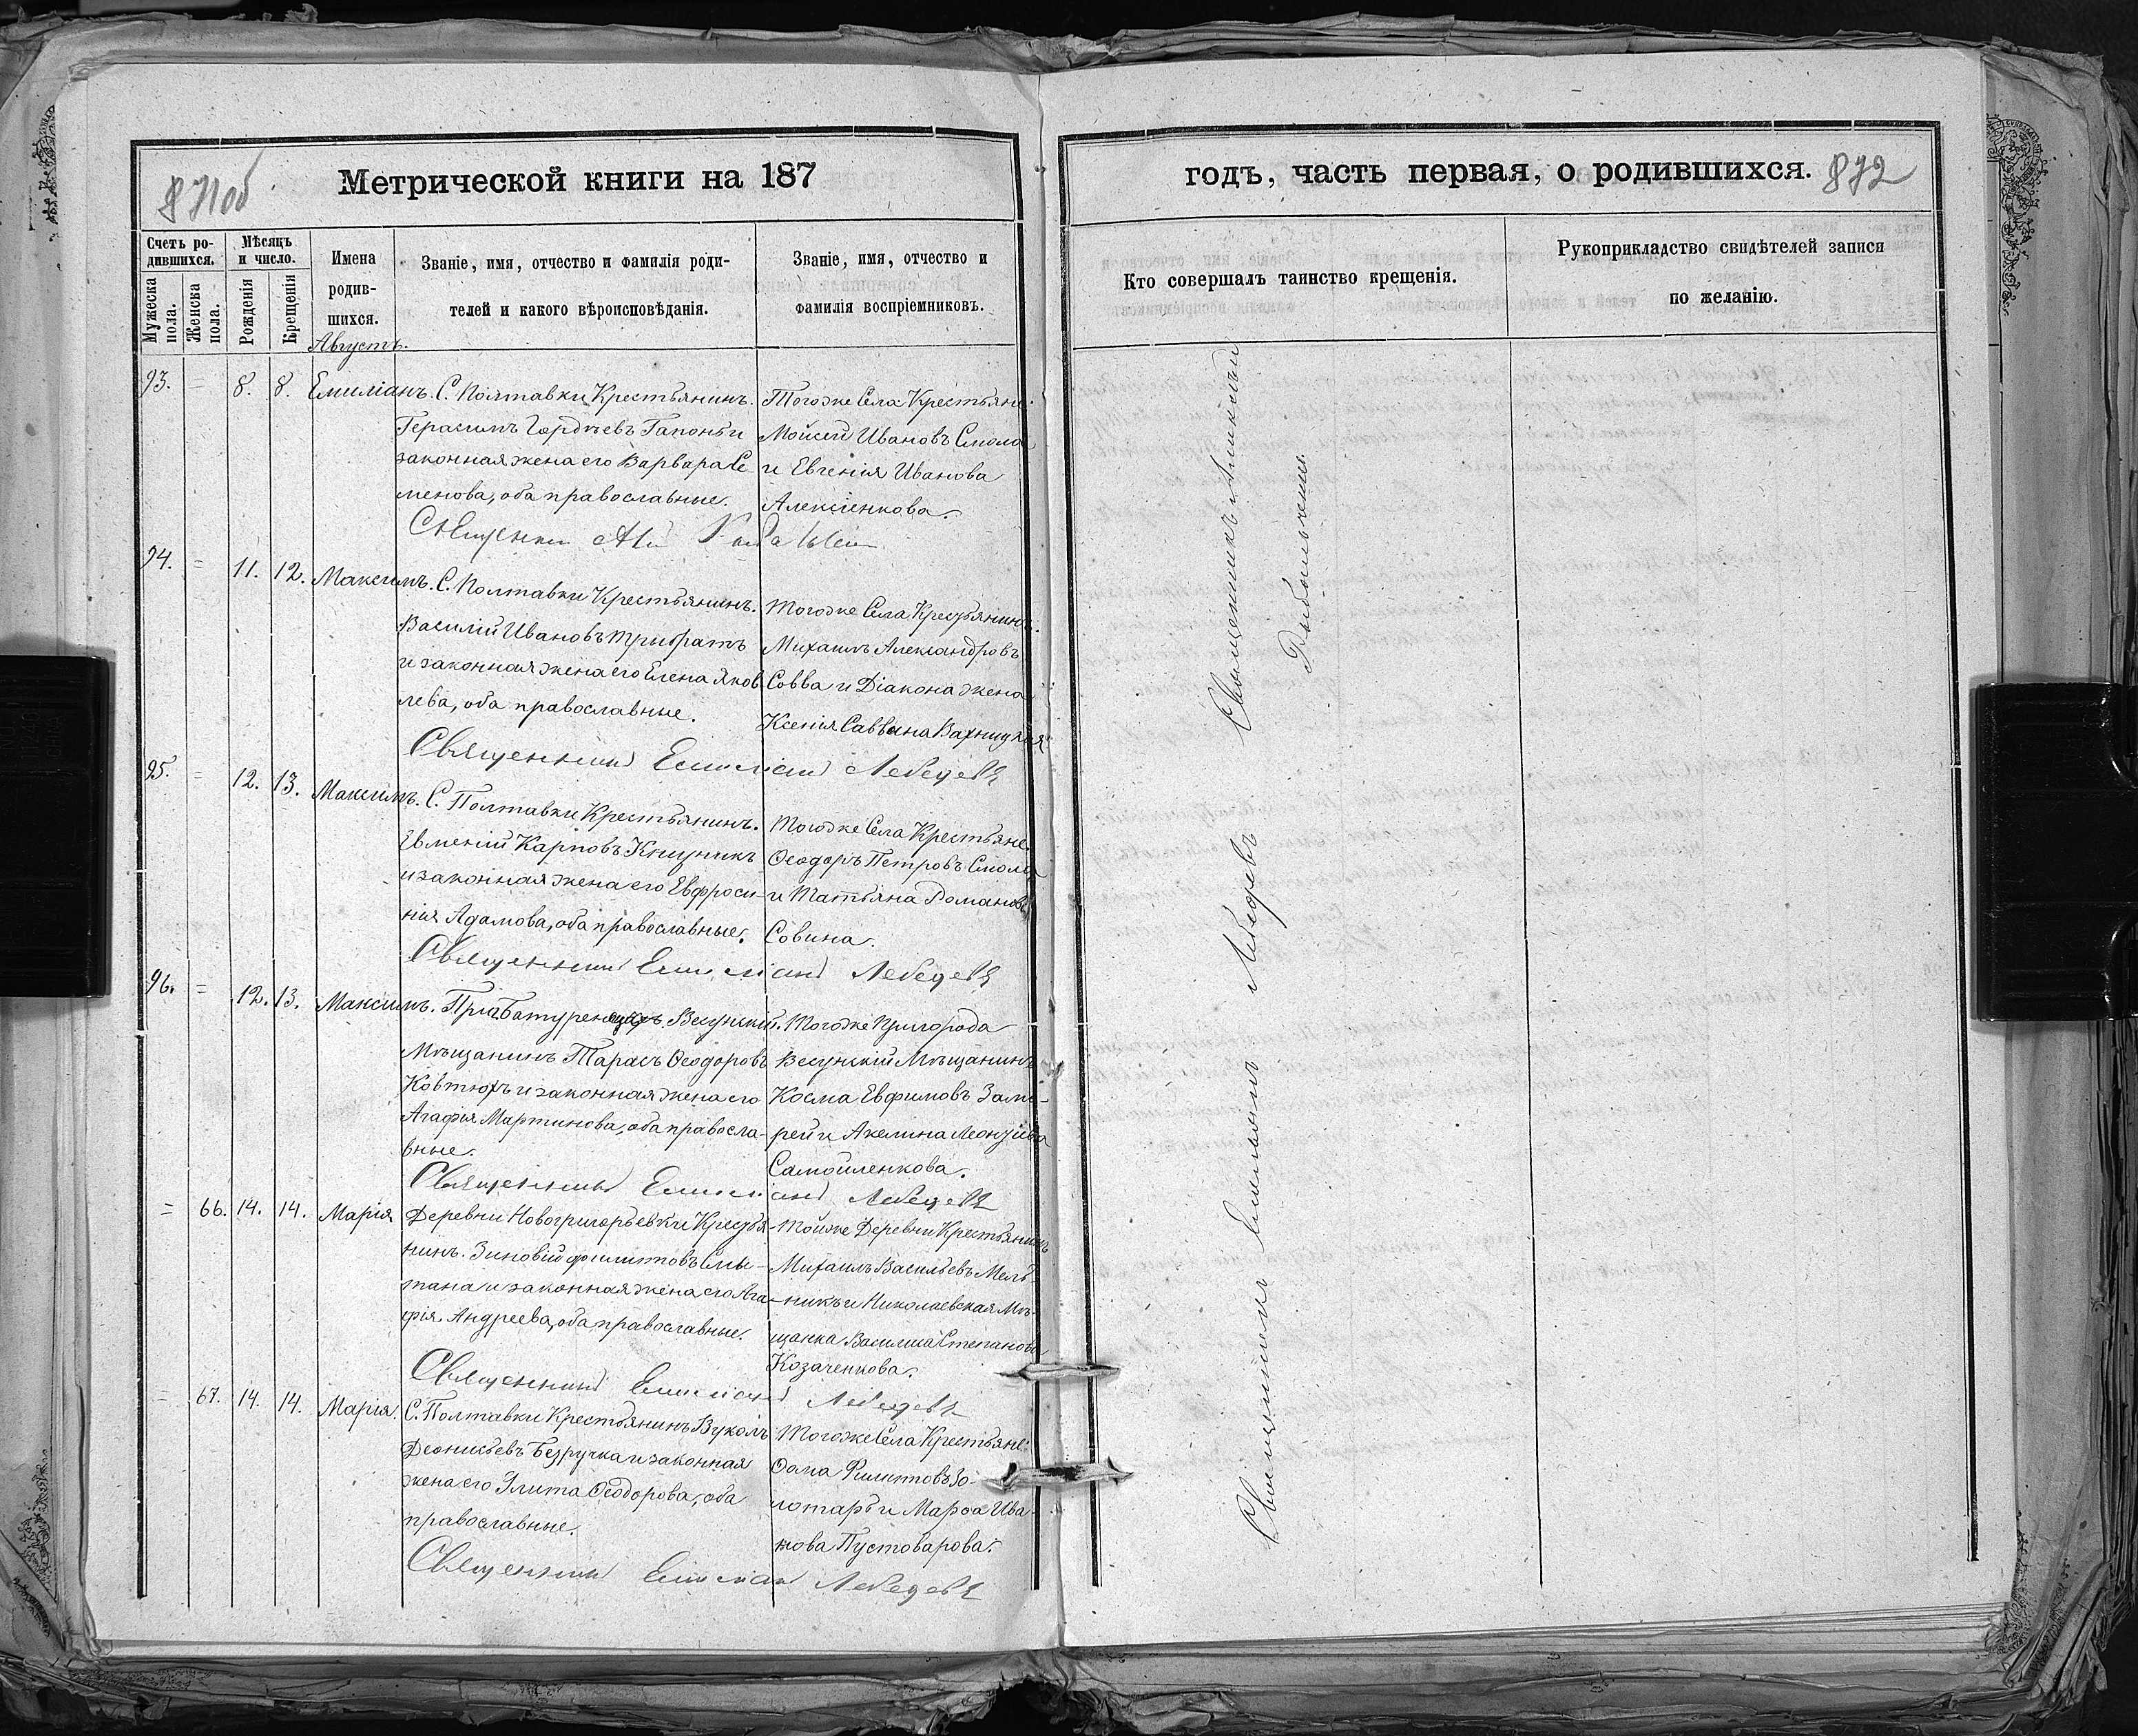 871об
Метрической книги на 187
Счетъ ро-
дившихся.
Мѣсяцъ
и число.
Имена
родив-
шихся.
Званіе, имя, отчество и фамилія роди-
телей и какого вѣроисповѣданія.
Званіе, имя, отчество и
фамилія воспріемниковъ.
Мужеска
пола.
Женска
пола.
Рожденія
Крещенія
Августъ.
93. = 8. 8. Емиліанъ. С. Полтавки Крестьянинъ.
Герасимъ Гордѣевъ Гапонъ и
законная жена его Варвара Се-
менова, оба православные.
Тогоже Села Крестьяне:
Мойсей Ивановъ Смола
и Евгенія Иванова
Алексіенкова.
94. = 11. 12. Максимъ. С. Полтавки Крестьянинъ.
Василій Ивановъ Трибратъ
и законная жена его Елена Яков
лева, оба православные.
Тогоже Села Крестьянинъ.
Михаилъ Александровъ
Совва и Діакона жена
Ксенія Саввина
Священникъ Емиліанъ Лебедевъ
95. = 12. 13. Максимъ. С. Полтавки Крестьянинъ.
Евменій Карповъ
и законная жена его Евфроси-
нія Адамова, оба православные.
Тогоже Села Крестьяне.
Ѳеодоръ Петровъ Смола
и Татьяна Романова
Совина.
Священникъ Емиліанъ Лебедевъ
96. = 12. 13. Максимъ.
Мѣщанинъ Тарасъ Ѳеодоровъ
Ковтюхъ и законная жена его
Агафія Мартинова, оба правосла-
вные.
Тогоже Пригорода
Мѣщанинъ
Косма Евфимовъ
рей и Акелина Леонтіева
Самойленкова.
Священникъ Емиліанъ Лебедевъ
= 66. 14. 14. Марія Деревни Новогригорьевки Крестья-
нинъ. Зиновій Филиповъ Сме-
тана и законная жена его Ага-
фія Андреева, оба православные.
Тойже Деревни Крестьянинъ
Михаилъ Васильевъ Мель-
никъ и Николаевская Мѣ-
щанка Василиса Степанова
Козаченкова.
Священникъ Емиліанъ Лебедевъ
= 67. 14. 14. Марія. С. Полтавки Крестьянинъ Вуколъ
Деонисьевъ Безручка и законная
жена его Улита Ѳеодорова, оба
православные.
Тогоже Села Крестьяне:
Ѳома Филиповъ Зо-
лотарь и Марѳа Ива-
нова Пустоварова.
Священникъ Емиліанъ Лебедевъ
годъ, часть первая, о родившихся.
872
Кто совершалъ таинство крещенія.
Рукоприкладство свидѣтелей записи
по желанію.
Священникъ Емиліанъ Лебедевъ
Священникъ